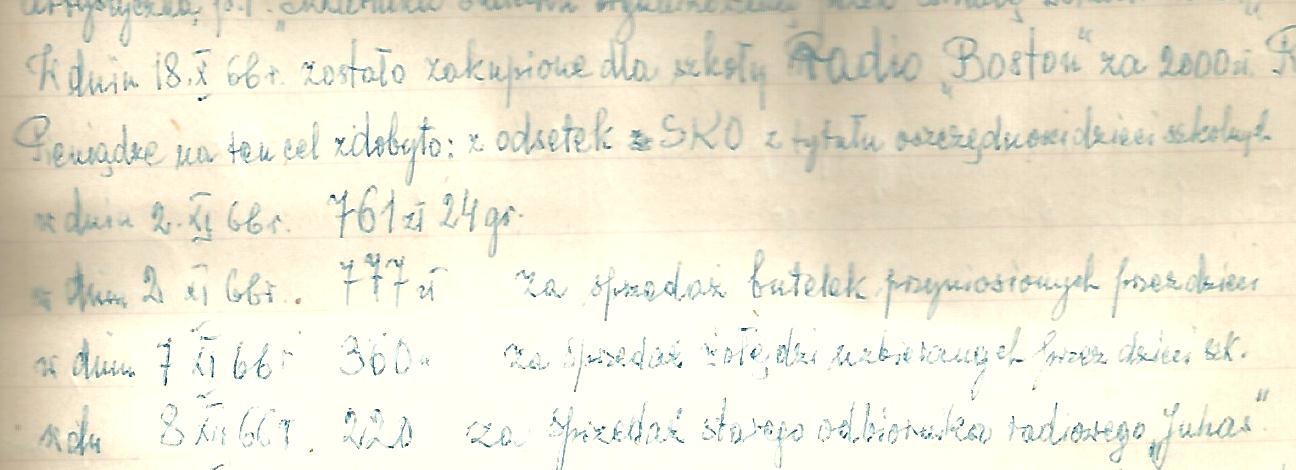 W dniu 18.X 66r. zostało zakupione dla szkoły Radio „Boston" za 2000 zł. R
Pieniądze na ten cel zdobyto: z odsetek z SKO z tytułu oszczędności dzieci szkolnych
w dniu 2.XI 66r. 761 zł 24 gr.
w dniu 2 XI 66r. 777 zł za sprzedaż butelek przyniosionych przez dzieci
w dniu 7 XI 66r 360 " za sprzedaż żołędzi uzbieranych przez dzieci szk.
w dn 8 XII 66r. 220 za sprzedaż starego odbiornika radiowego „Juhas"